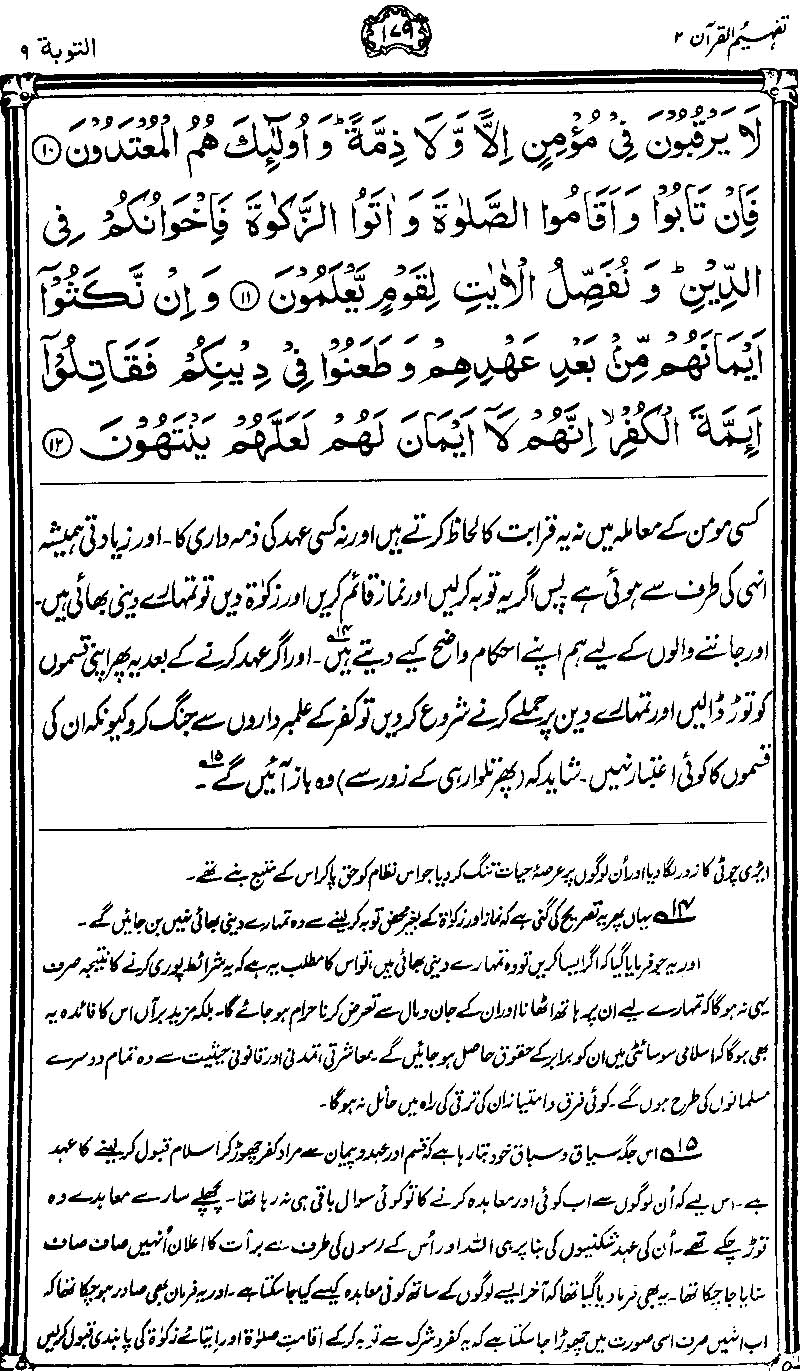 تفہیم القرآن ۲
۱۷۹
التوبة ۹
لَا يَرْقُبُوْنَ فِيْ مُؤْمِنٍ اِلًّا وَّلَا ذِمَّةً ؕ وَاُولٰٓئِكَ هُمُ الْمُعْتَدُوْنَ ۝۱۰
فَاِنْ تَابُوْا وَاَقَامُوا الصَّلٰوةَ وَاٰتَوُا الزَّكٰوةَ فَاِخْوَانُكُمْ فِي
الدِّيْنِ ؕ وَنُفَصِّلُ الْاٰيٰتِ لِقَوْمٍ يَّعْلَمُوْنَ ۝۱۱ وَاِنْ نَّكَثُوْۤا
اَيْمَانَهُمْ مِّنْۢ بَعْدِ عَهْدِهِمْ وَطَعَنُوْا فِيْ دِيْنِكُمْ فَقَاتِلُوْۤا
اَىِٕمَّةَ الْكُفْرِ ۙ اِنَّهُمْ لَاۤ اَيْمَانَ لَهُمْ لَعَلَّهُمْ يَنْتَهُوْنَ ۝۱۲
کسی مومن کے معاملہ میں نہ یہ قرابت کا لحاظ کرتے ہیں اور نہ کسی عہد کی ذمہ داری کا۔ اور زیادتی ہمیشہ
انہی کی طرف سے ہوئی ہے۔ پس اگر یہ توبہ کر لیں اور نماز قائم کریں اور زکوٰۃ دیں تو تمہارے دینی بھائی ہیں۔
اور جاننے والوں کے لیے ہم اپنے احکام واضح کیے دیتے ہیں۱۴۔ اور اگر عہد کرنے کے بعد یہ پھر اپنی قسموں
کو توڑ ڈالیں اور تمہارے دین پر حملے کرنے شروع کر دیں تو کفر کے علمبرداروں سے جنگ کرو کیونکہ ان کی
قسموں کا کوئی اعتبار نہیں۔ شاید کہ (پھر تلوار ہی کے زور سے) وہ باز آئیں گے۱۵۔
ایڑی چوٹی کا زور لگا دیا اور اُن لوگوں پر عرصۂ حیات تنگ کر دیا جو اس نظام کو حق پا کر اس کے متبع بنے تھے۔
۱۴؎ یہاں پھر یہ تصریح کی گئی ہے کہ نماز اور زکوٰۃ کے بغیر محض توبہ کر لینے سے وہ تمہارے دینی بھائی نہیں بن جائیں گے۔
اور یہ جو فرمایا گیا کہ اگر ایسا کریں تو وہ تمہارے دینی بھائی ہیں، تو اس کا مطلب یہ ہے کہ یہ شرائط پوری کرنے کا نتیجہ صرف
یہی نہ ہوگا کہ تمہارے لیے ان پر ہاتھ اٹھانا اور ان کے جان و مال سے تعرض کرنا حرام ہو جائے گا۔ بلکہ مزید برآں اس کا فائدہ یہ
بھی ہوگا کہ اسلامی سوسائٹی میں ان کو برابر کے حقوق حاصل ہو جائیں گے۔ معاشرتی، تمدنی اور قانونی حیثیت سے وہ تمام دوسرے
مسلمانوں کی طرح ہوں گے۔ کوئی فرق و امتیاز ان کی ترقی کی راہ میں حائل نہ ہوگا۔
۱۵؎ اس جگہ سیاق و سباق خود بتا رہا ہے کہ قسم اور عہد و پیمان سے مراد کفر چھوڑ کر اسلام قبول کر لینے کا عہد
ہے۔ اس لیے کہ اُن لوگوں سے اب کوئی اور معاہدہ کرنے کا تو کوئی سوال باقی ہی نہ رہا تھا۔ پچھلے سارے معاہدے وہ
توڑ چکے تھے۔ اُن کی عہد شکنیوں کی بنا پر ہی اللہ اور اُس کے رسول کی طرف سے برأت کا اعلان اُنہیں صاف صاف
سنایا جا چکا تھا۔ یہ بھی فرما دیا گیا تھا کہ آخر ایسے لوگوں کے ساتھ کوئی معاہدہ کیسے کیا جا سکتا ہے۔ اور یہ فرمان بھی صادر ہو چکا تھا کہ
اب انہیں صرف اسی صورت میں چھوڑا جا سکتا ہے کہ یہ کفر و شرک سے توبہ کر کے اقامتِ صلوٰۃ اور ایتائے زکوٰۃ کی پابندی قبول کر لیں